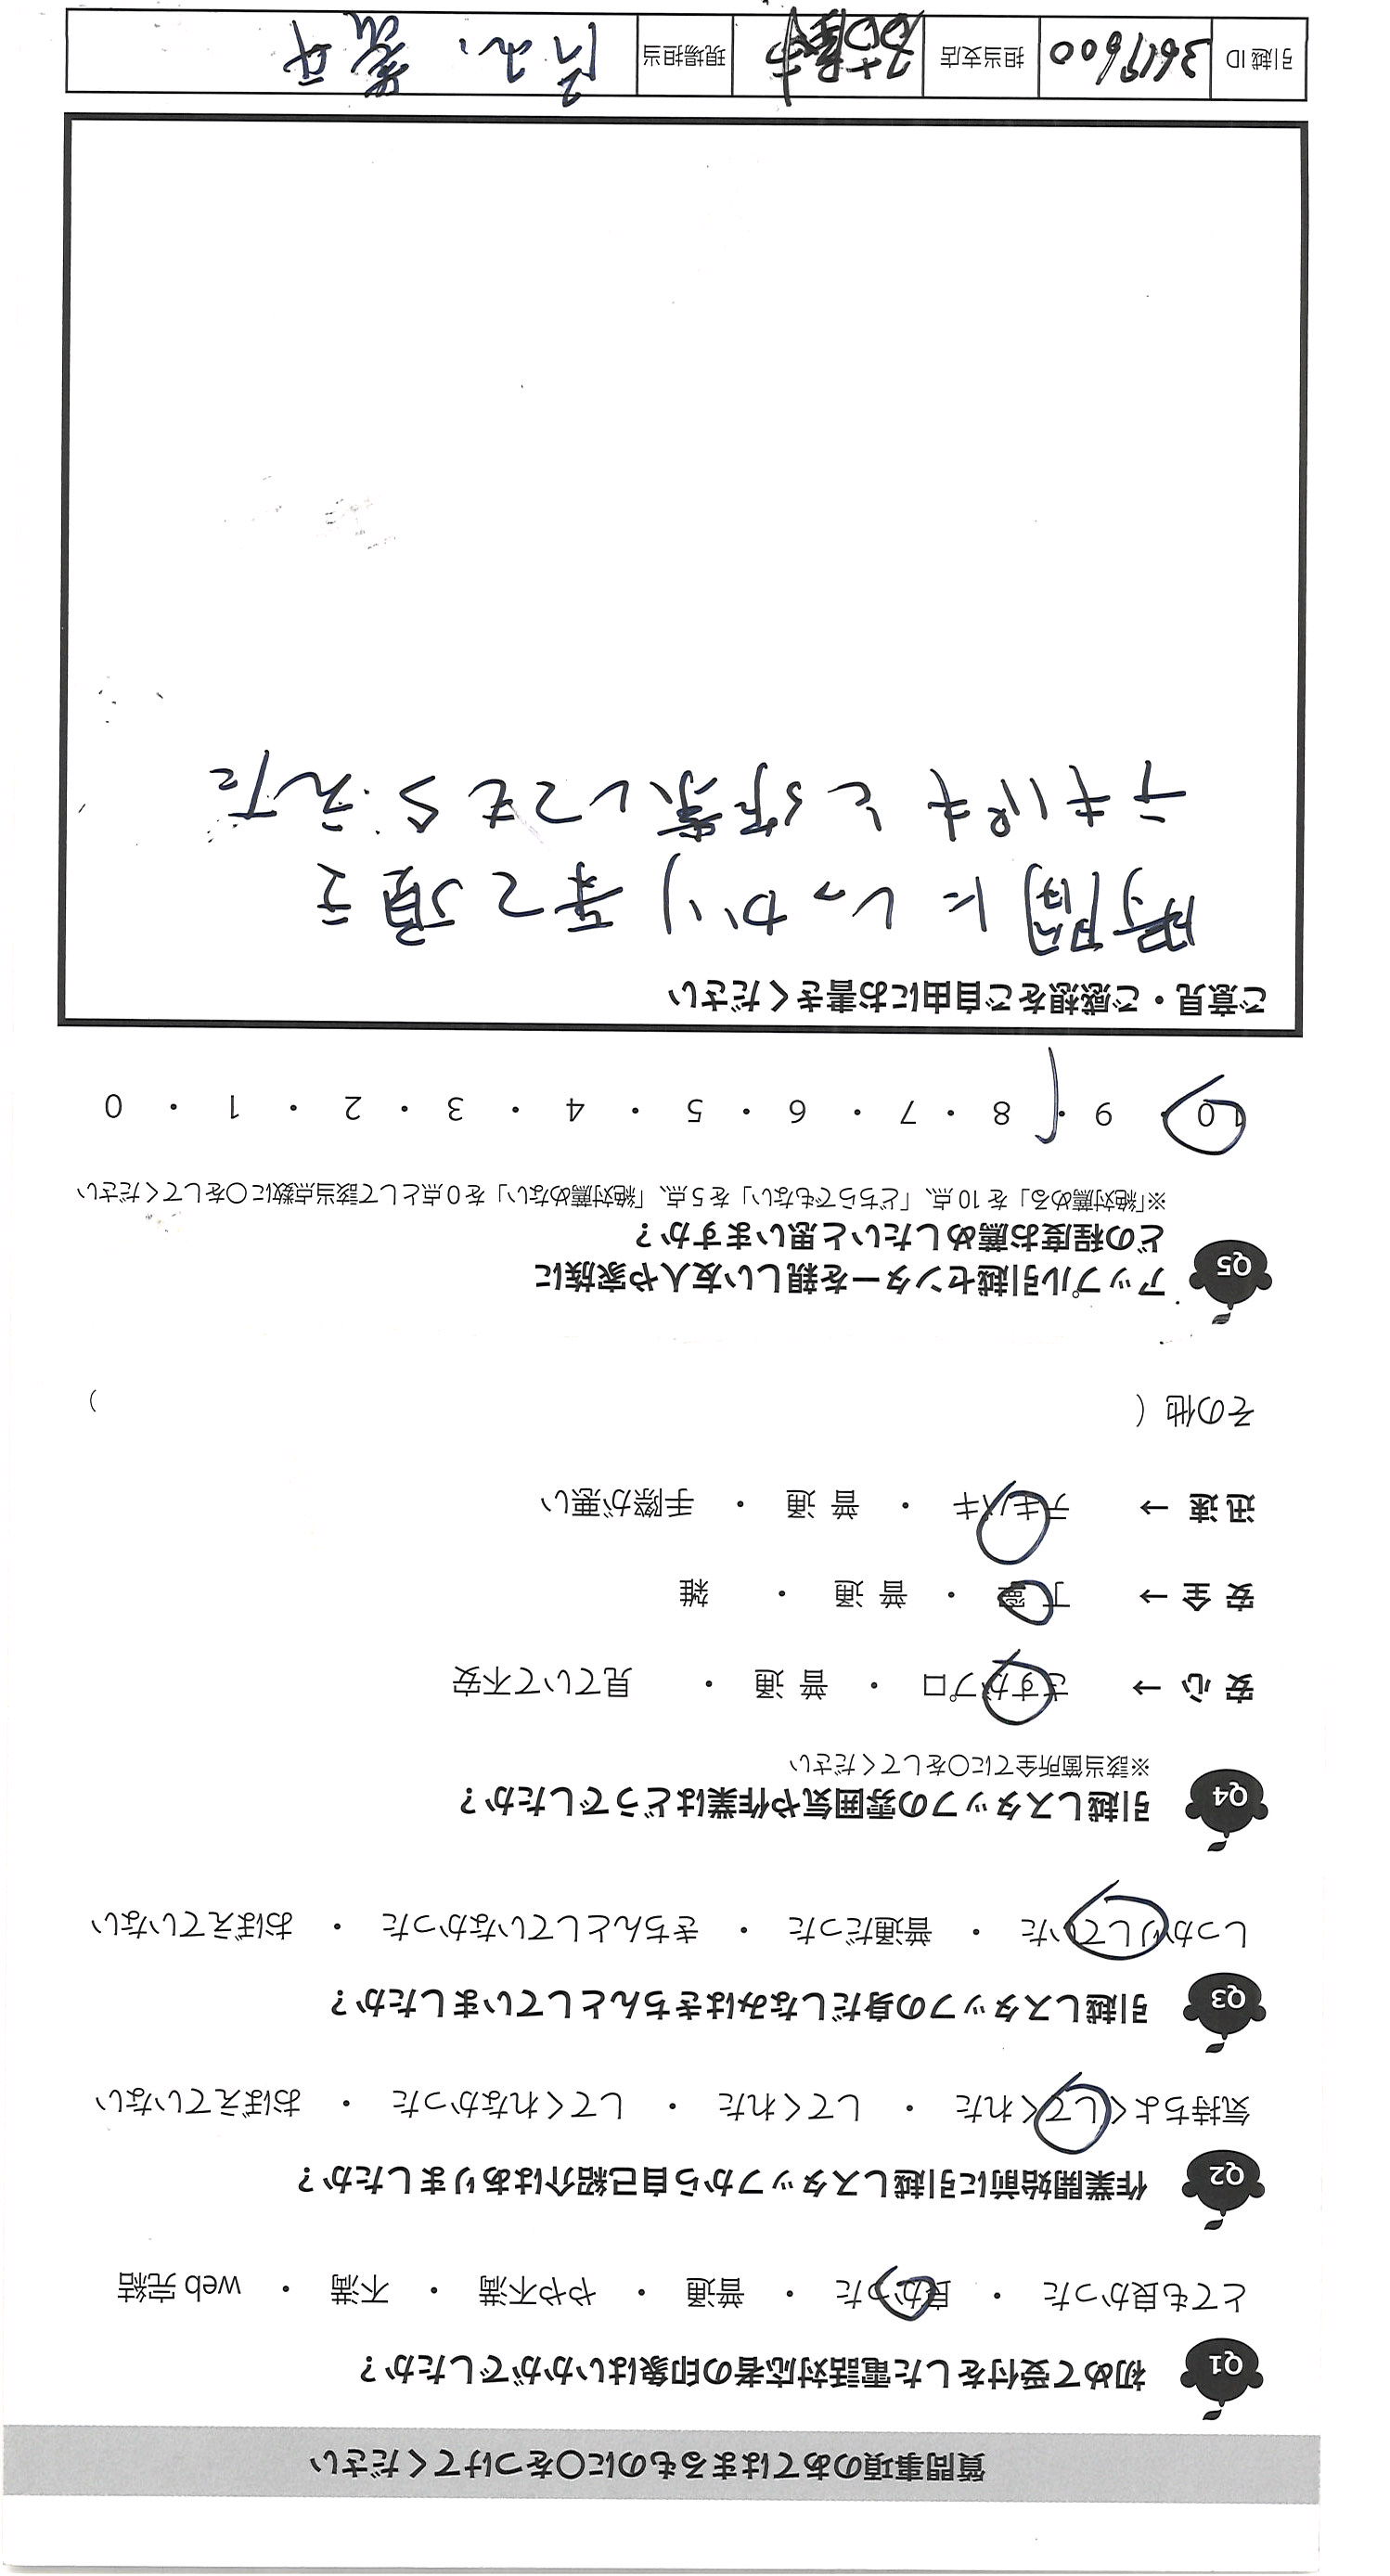 質問事項のあてはまるものに○をつけてください
Q1 初めて受付をした電話対応者の印象はいかがでしたか？
とても良かった ・ 良かった ・ 普通 ・ やや不満 ・ 不満 ・ web 完結
Q2 作業開始前に引越しスタッフから自己紹介はありましたか？
気持ちよくしてくれた ・ してくれた ・ してくれなかった ・ おぼえていない
Q3 引越しスタッフの身だしなみはきちんとしていましたか？
しっかりしていた ・ 普通だった ・ きちんとしていなかった ・ おぼえていない
Q4 引越しスタッフの雰囲気や作業はどうでしたか？
※該当箇所全てに○をしてください
安 心 → さすがプロ ・ 普 通 ・ 見ていて不安
安 全 → 丁 寧 ・ 普 通 ・ 雑
迅 速 → テキパキ ・ 普 通 ・ 手際が悪い
その他（ ）
Q5 アップル引越センターを親しい友人や家族に
どの程度お薦めしたいと思いますか？
※「絶対薦める」を 10 点、「どちらでもない」を 5 点、「絶対薦めない」を 0 点として該当点数に○をしてください
10 ・ 9 ・ 8 ・ 7 ・ 6 ・ 5 ・ 4 ・ 3 ・ 2 ・ 1 ・ 0
ご意見・ご感想をご自由にお書きください
時間にしっかり来て頂き
テキパキと作業してもらえた
引越 ID 3619600 担当支店 現場担当